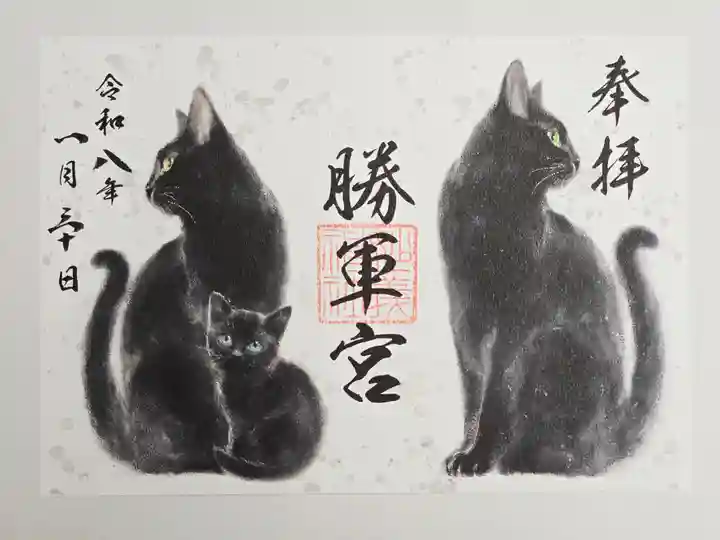 奉拝
勝軍宮
令和八年
八月三十日